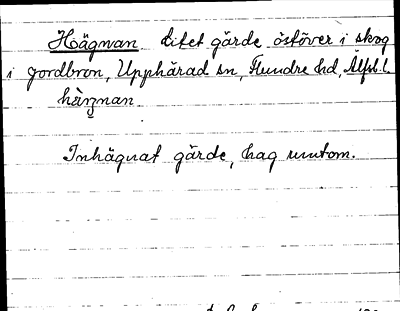 Hägnan litet gärde österöver i skog
i Jordbron, Upphärad sn, Flundre hd, Älfsb. l.
hä̀ŋnan
Inhägnat gärde, hag runtom.